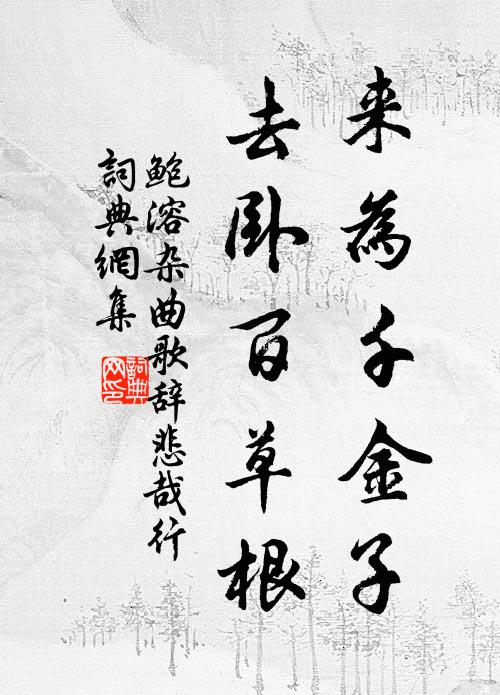 来為千金子
去臥百草根
鲍溶杂曲歌辞悲哉行
詞典網集
詞典
网印